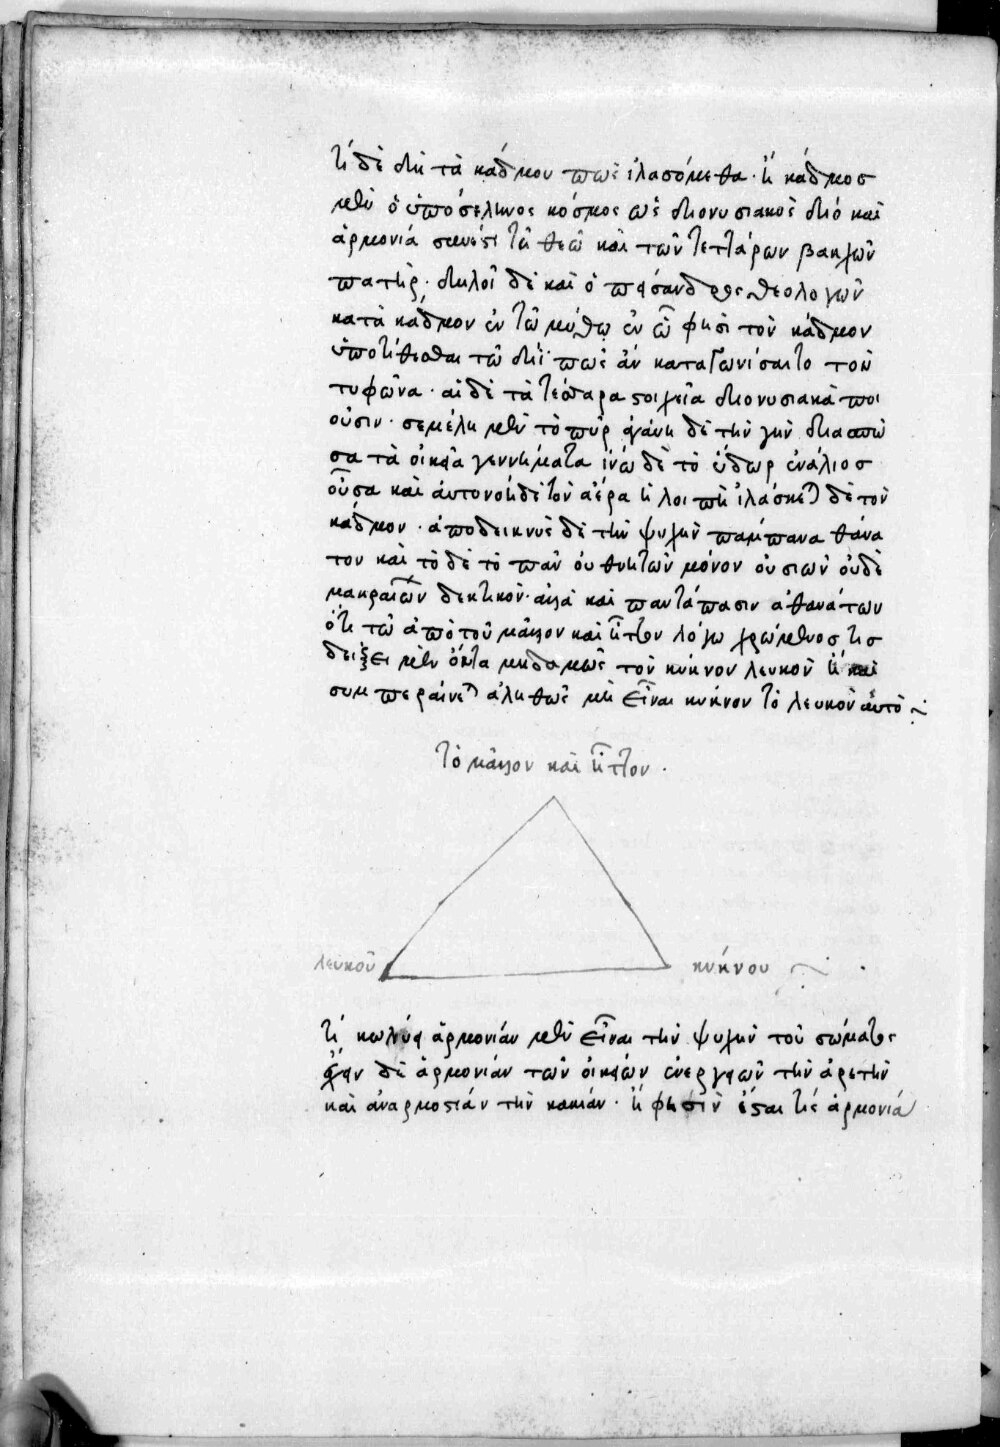 τί δὲ δὴ τὰ κάδμου πῶς ἱλασόμεθα· ἢ κάδμος
μὲν ὁ ὑποσέληνος κόσμος ὡς διονυσιακὸς διὸ καὶ
ἁρμονία σύνεστι τῶ θεῶ καὶ τῶν τεττάρων βακχῶν
πατήρ· δηλοῖ δὲ καὶ ὁ πείσανδρος θεολογῶν
κατὰ κάδμον ἐν τῶ μύθω ἐν ὧ φησὶ τὸν κάδμον
ὑποτίθεσθαι τῶ διῒ πῶς ἂν καταγωνίσαιτο τὸν
τυφῶνα· αἱ δὲ τὰ τέσσαρα στοιχεῖα διονυσιακὰ ποι
οῦσιν· σεμέλη μὲν τὸ πῦρ ἀγάυη δὲ τὴν γῆν διασπῶ
σα τὰ οἰκεῖα γεννήματα ἰνὼ δὲ τὸ ὕδωρ ἐνάλιος
οὖσα καὶ αὐτονόη δὲ τὸν ἀέρα ἡ λοιπὴ ἱλάσκεται δὲ τὸν
κάδμον· ἀποδεικνὺς δὲ τὴν ψυχὴν παμπαν ἀθάνα
τον καὶ τὸ δὲ τὸ πᾶν οὐ θνητῶν μόνον οὐσιῶν οὐδὲ
μακραιῶν δεκτικὸν· ἀλλὰ καὶ παντάπασιν ἀθανάτων
ὅτι τῶ ἀπὸ τοῦ μᾶλλον καὶ ἧττον λόγω χρώμενος τις
δείξει μὲν ὄντα μηδαμῶς τὸν κύκνον λευκὸν ἢ καὶ
συμπεραίνεται ἀληθῶς μὴ εἶναι κύκνον τὸ λευκὸν αὐτὸ
τὸ μᾶλλον καὶ ἧττον·
λευκοῦ κύκνου
τί κωλύει ἁρμονίαν μὲν εἶναι τὴν ψυχὴν τοῦ σώματος
δὲ ἁρμονίαν τῶν οἰκείων ἐνεργειῶν τὴν ἀρετὴν
καὶ ἀναρμοστίαν τὴν κακίαν· ἢ φησὶν ἔσται τίς ἁρμονία